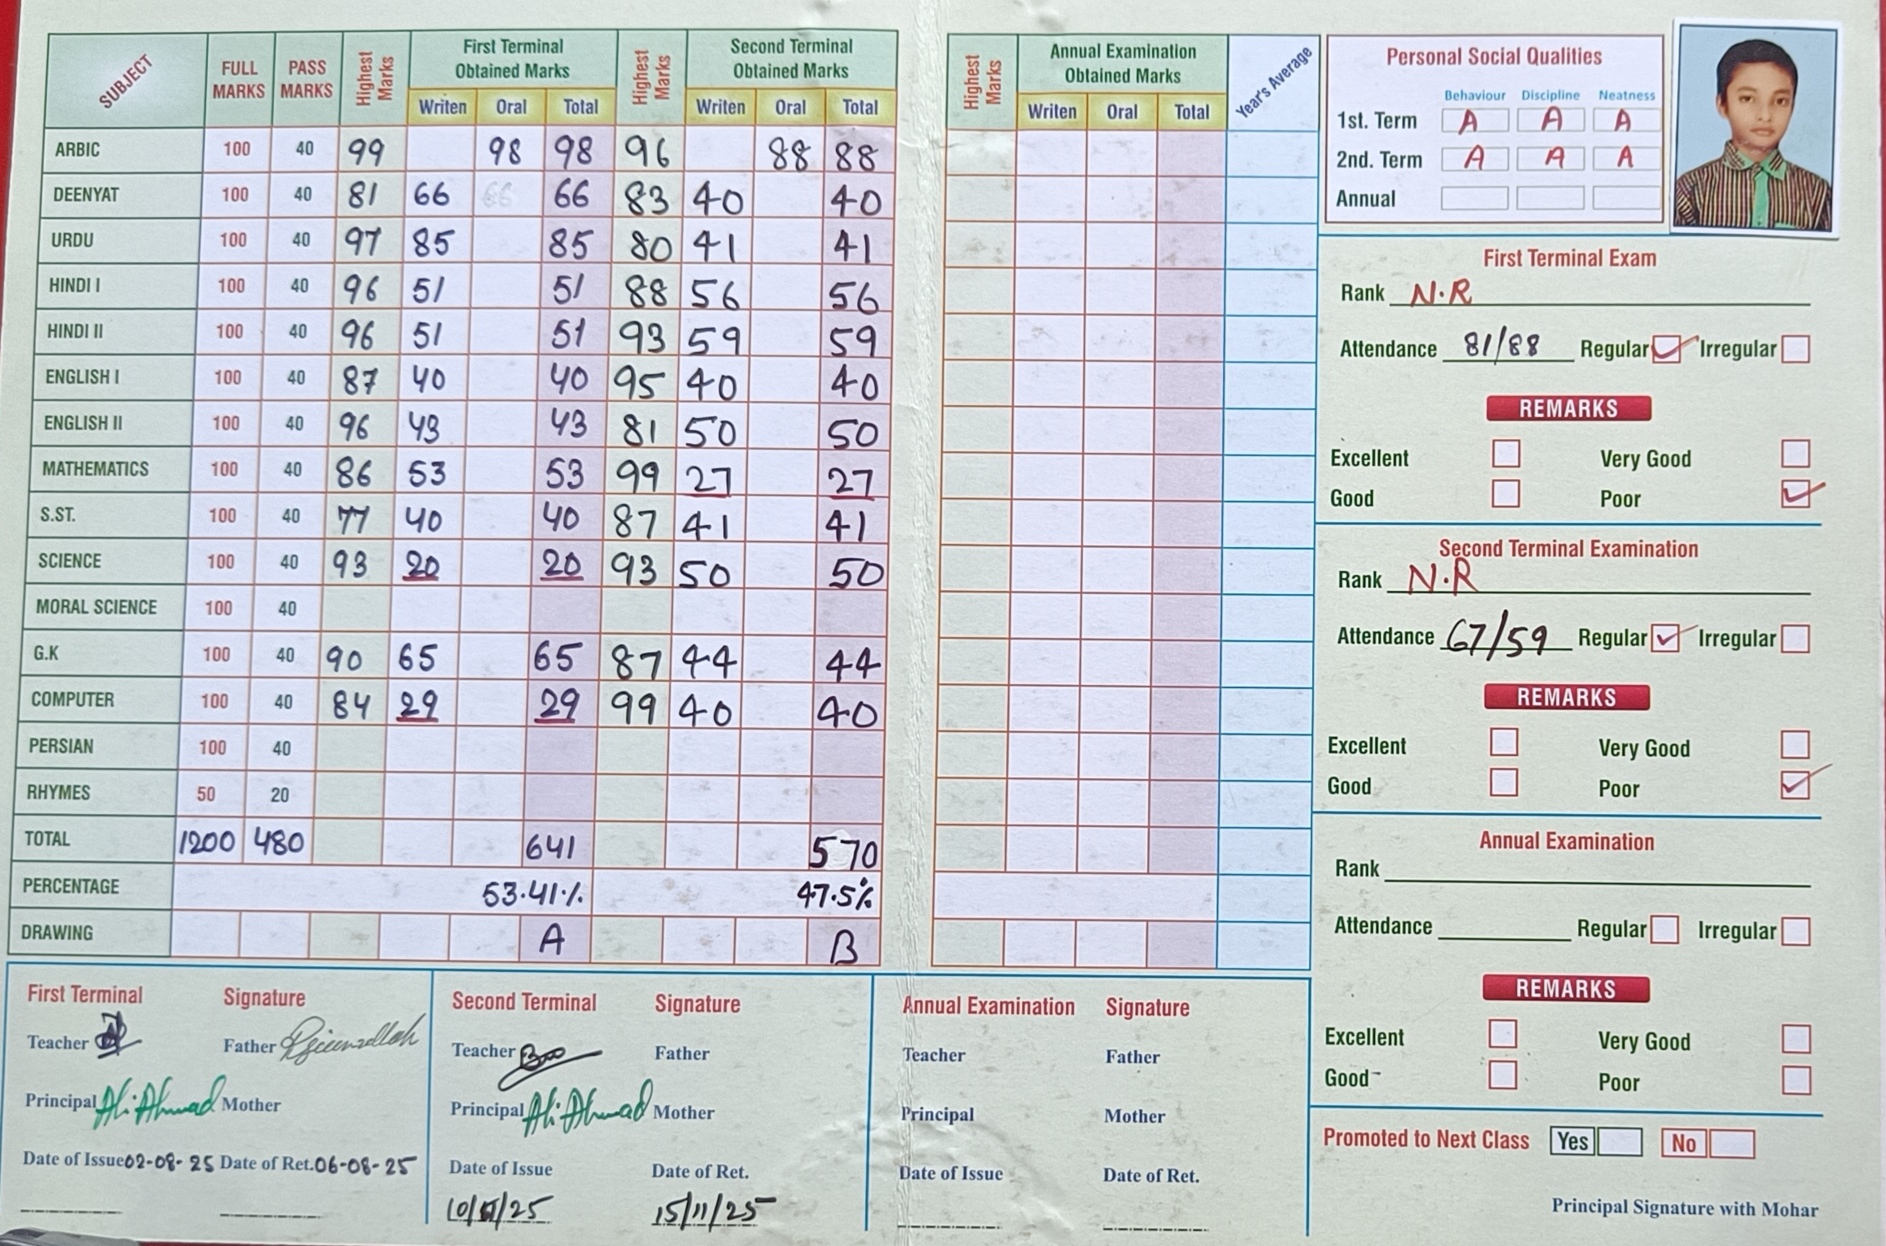 SUBJECT FULL MARKS PASS MARKS Highest Marks First Terminal Obtained Marks Highest Marks Second Terminal Obtained Marks
Writen Oral Total Writen Oral Total
ARBIC 100 40 99 98 98 96 88 88
DEENYAT 100 40 81 66 66 66 83 40 40
URDU 100 40 97 85 85 80 41 41
HINDI I 100 40 96 51 51 88 56 56
HINDI II 100 40 96 51 51 93 59 59
ENGLISH I 100 40 87 40 40 95 40 40
ENGLISH II 100 40 96 43 43 81 50 50
MATHEMATICS 100 40 86 53 53 99 27 27
S.ST. 100 40 77 40 40 87 41 41
SCIENCE 100 40 93 20 20 93 50 50
MORAL SCIENCE 100 40
G.K 100 40 90 65 65 87 44 44
COMPUTER 100 40 84 29 29 99 40 40
PERSIAN 100 40
RHYMES 50 20
TOTAL 1200 480 641 570
PERCENTAGE 53.41% 47.5%
DRAWING A B
Highest Marks Annual Examination Obtained Marks Year's Average
Writen Oral Total
Personal Social Qualities
Behaviour Discipline Neatness
1st. Term A A A
2nd. Term A A A
Annual
First Terminal Exam
Rank N.R
Attendance 81/88 Regular Irregular
REMARKS
Excellent Very Good
Good Poor
Second Terminal Examination
Rank N.R
Attendance 67/59 Regular Irregular
REMARKS
Excellent Very Good
Good Poor
Annual Examination
Rank
Attendance Regular Irregular
REMARKS
Excellent Very Good
Good Poor
Promoted to Next Class Yes No
Principal Signature with Mohar
First Terminal Signature
Teacher Father
Principal Ali Ahmad Mother
Date of Issue 02-08-25 Date of Ret. 06-08-25
Second Terminal Signature
Teacher Father
Principal Ali Ahmad Mother
Date of Issue Date of Ret.
15/11/25
Annual Examination Signature
Teacher Father
Principal Mother
Date of Issue Date of Ret.